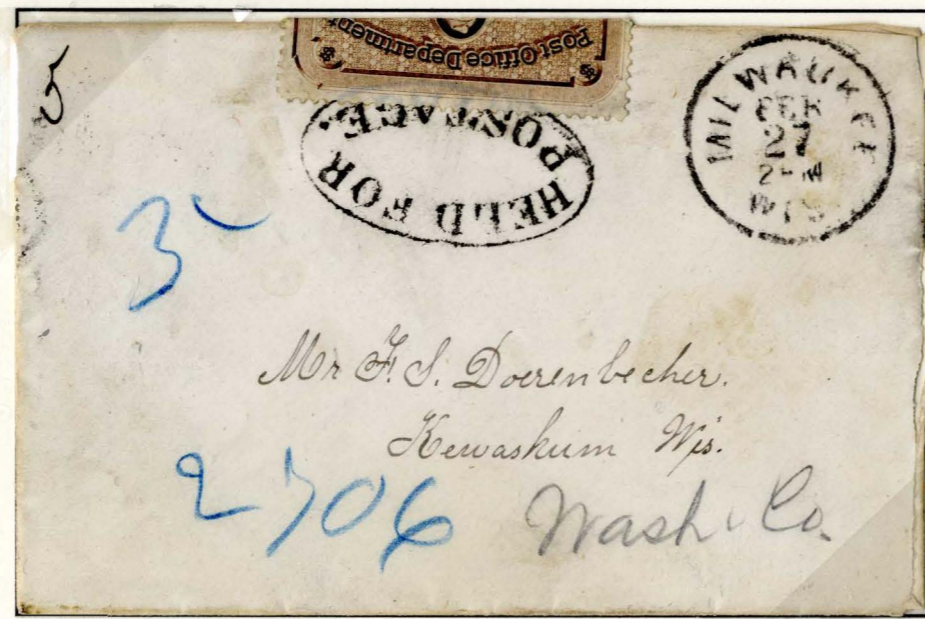 5
Post Office Department
HELD FOR
POSTAGE.
MILWAUKEE
FEB
27
2 PM
WIS
3
Mr F. S. Doerenbecher.
Kewaskum Wis.
2706 Wash. Co.